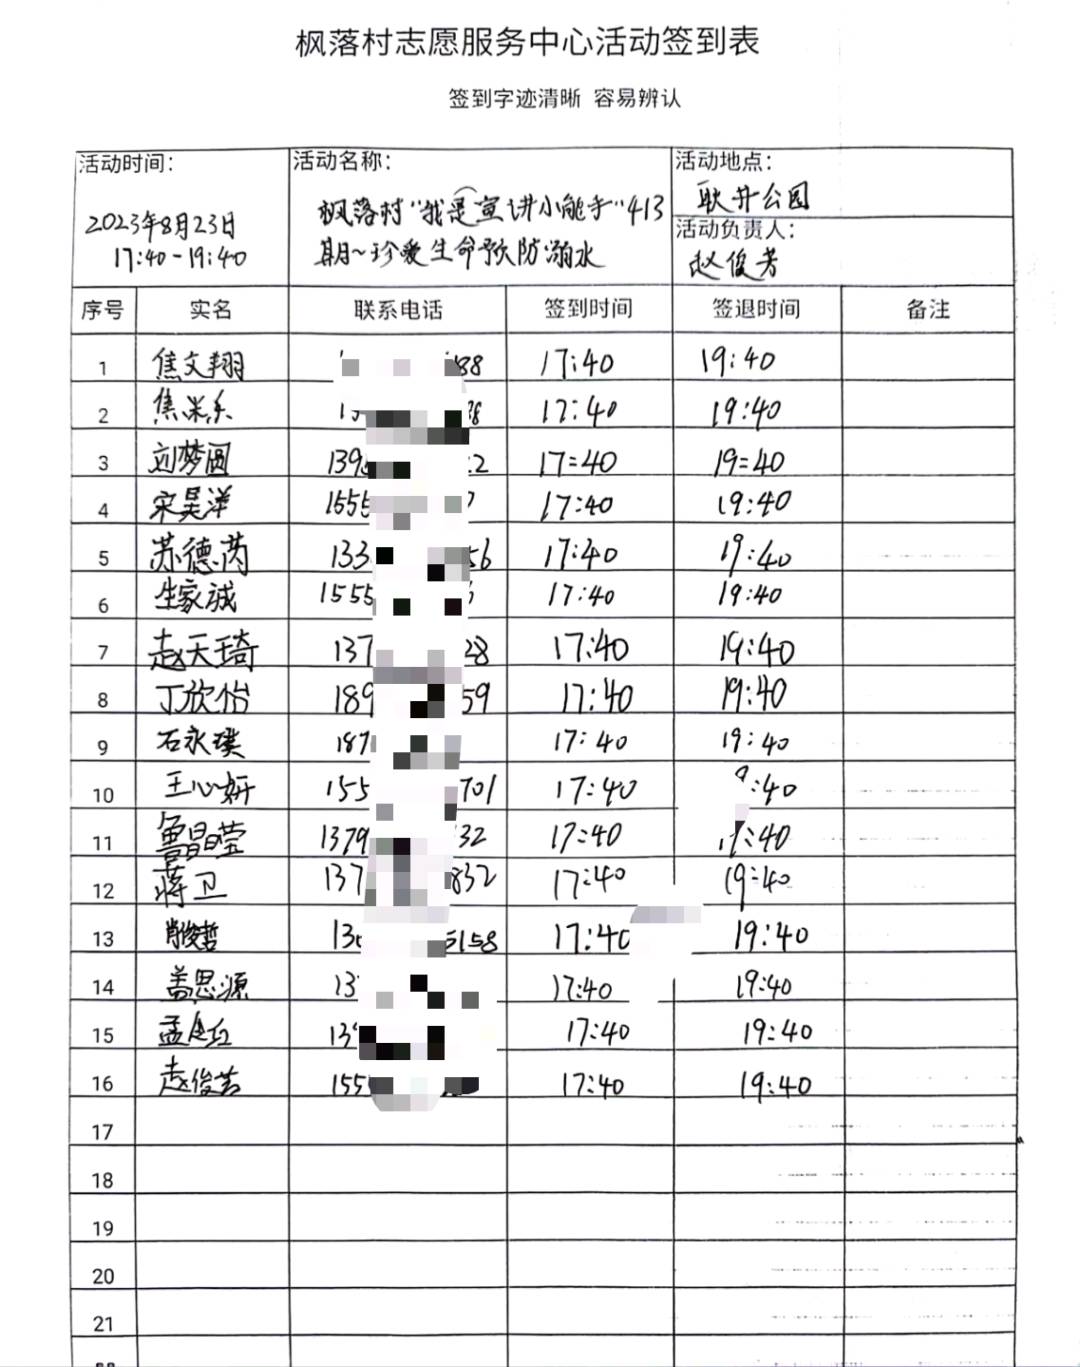 枫落村志愿服务中心活动签到表
签到字迹清晰 容易辨认
活动时间:
2023年8月23日
17:40-19:40
活动名称:
枫落村"我是宣讲小能手"413
期~珍爱生命预防溺水
活动地点:
耿井公园
活动负责人:
赵俊芳
序号 实名 联系电话 签到时间 签退时间 备注
1 焦文翔 88 17:40 19:40
2 17:40 19:40
3 刘梦圆 139 2 17=40 19=40
4 宋昊洋 1555 17:40 19:40
5 苏德芮 133 56 17:40 19:40
6 生家诚 1555 17:40 19:40
7 赵天琦 137 28 17:40 19:40
8 丁欣怡 189 59 17:40 19:40
9 石永璞 187 17:40 19:40
10 王心妍 155 701 17:40 :40
11 鲁晶莹 1379 32 17:40 :40
12 蒋卫 137 832 17:40 19:40
13 肖俊哲 13 5158 17:40 19:40
14 盖思源 13 17:40 19:40
15 13 17:40 19:40
16 赵俊芳 155 17:40 19:40
17
18
19
20
21